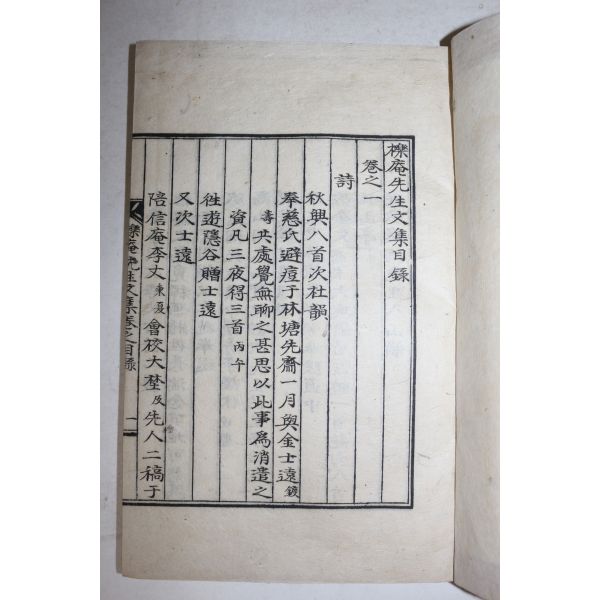 櫟庵先生文集目錄
卷之一
詩
秋興八首次杜韻
奉慈氏避痘于林塘先齋一月與金士遠鍍
壽共處覺無聊之甚思以此事爲消遣之
資凡三夜得三首丙午
往遊隱谷贈士遠
又次士遠
陪信庵李丈東夏會校大埜及先人二稿于
櫟庵先生文集卷之目錄
一